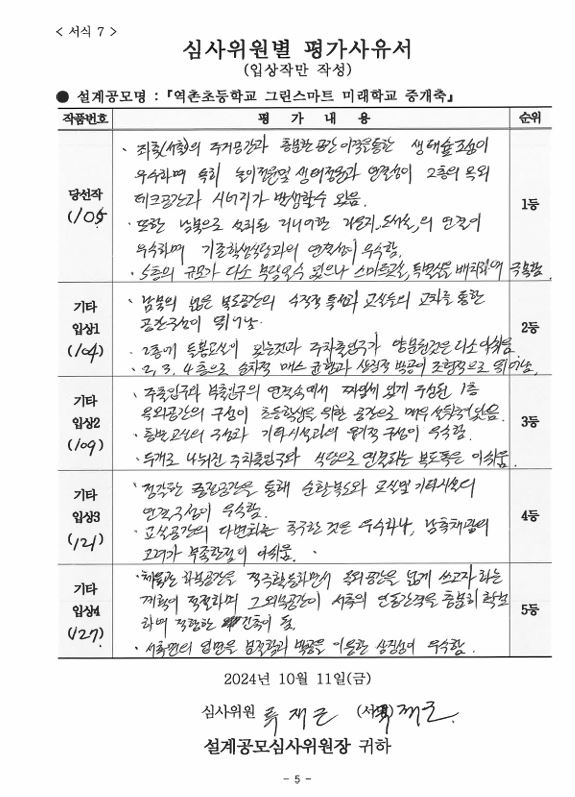 < 서식 7 >
심사위원별 평가사유서
(입상작만 작성)
● 설계공모명 : 『역촌초등학교 그린스마트 미래학교 증개축』
작품번호 평 가 내 용 순위
당선작
(105)
· 좌측(서측)의 주거공간과 충분한 공간 이격을통한 생태숲조성이
우수하며 특히 놀이정원및 생태정원과 연결성이 2층의 옥외
데크공간과 시너지가 발생할수 있음.
· 또한 남북으로 설치된 리니어한 도서실,의 연결이
우수하며 기존학생식당과의 연결성이 우수함.
· 5층의 규모가 다소 부담일수 있으나 스마트교실, 특별실을 배치하여 극복함.
1등
기타
입상1
(104)
· 남북의 넓은 복도공간의 수직적 특성과 교실들의 교차를 통한
공간구성이 뛰어남.
· 2층에 돌봄교실이 있는것과 주차출입구가 양분된것은 다소 아쉬움.
· 2, 3, 4층으로 순차적 매스 균형과 상징적 박공이 조형적으로 뛰어남.
2등
기타
입상2
(109)
· 주출입구와 부출입구의 연결속에서 짜임새 있게 구성된 1층
옥외공간의 구성이 초등학생을 위한 공간으로 매우
· 일반교실의 구성과 기타시설과의 유기적 구성이 우수함.
· 두개로 나눠진 주차출입구와 식당으로 연결되는 복도폭은 아쉬움.
3등
기타
입상3
(121)
· 적절한 중정공간을 통해 순환복도와 교실및 기타시설의
연결구성이 우수함.
· 교실공간의 다변화를 추구한 것은 우수하나, 남측채광의
고려가 부족한점이 아쉬움.
4등
기타
입상4
(127)
· 체육관 하부공간을 적극활용하면서 옥외공간을 넓게 쓰고자 하는
계획이 적절하며 그 외부공간이 서측의 연동간격을 충분히 확보
하며 적합한 건축이 됨.
· 서측면의 입면을 박공을 이용한 상징성이 우수함.
5등
2024년 10월 11일(금)
심사위원 류재은 (서명)
설계공모심사위원장 귀하
- 5 -